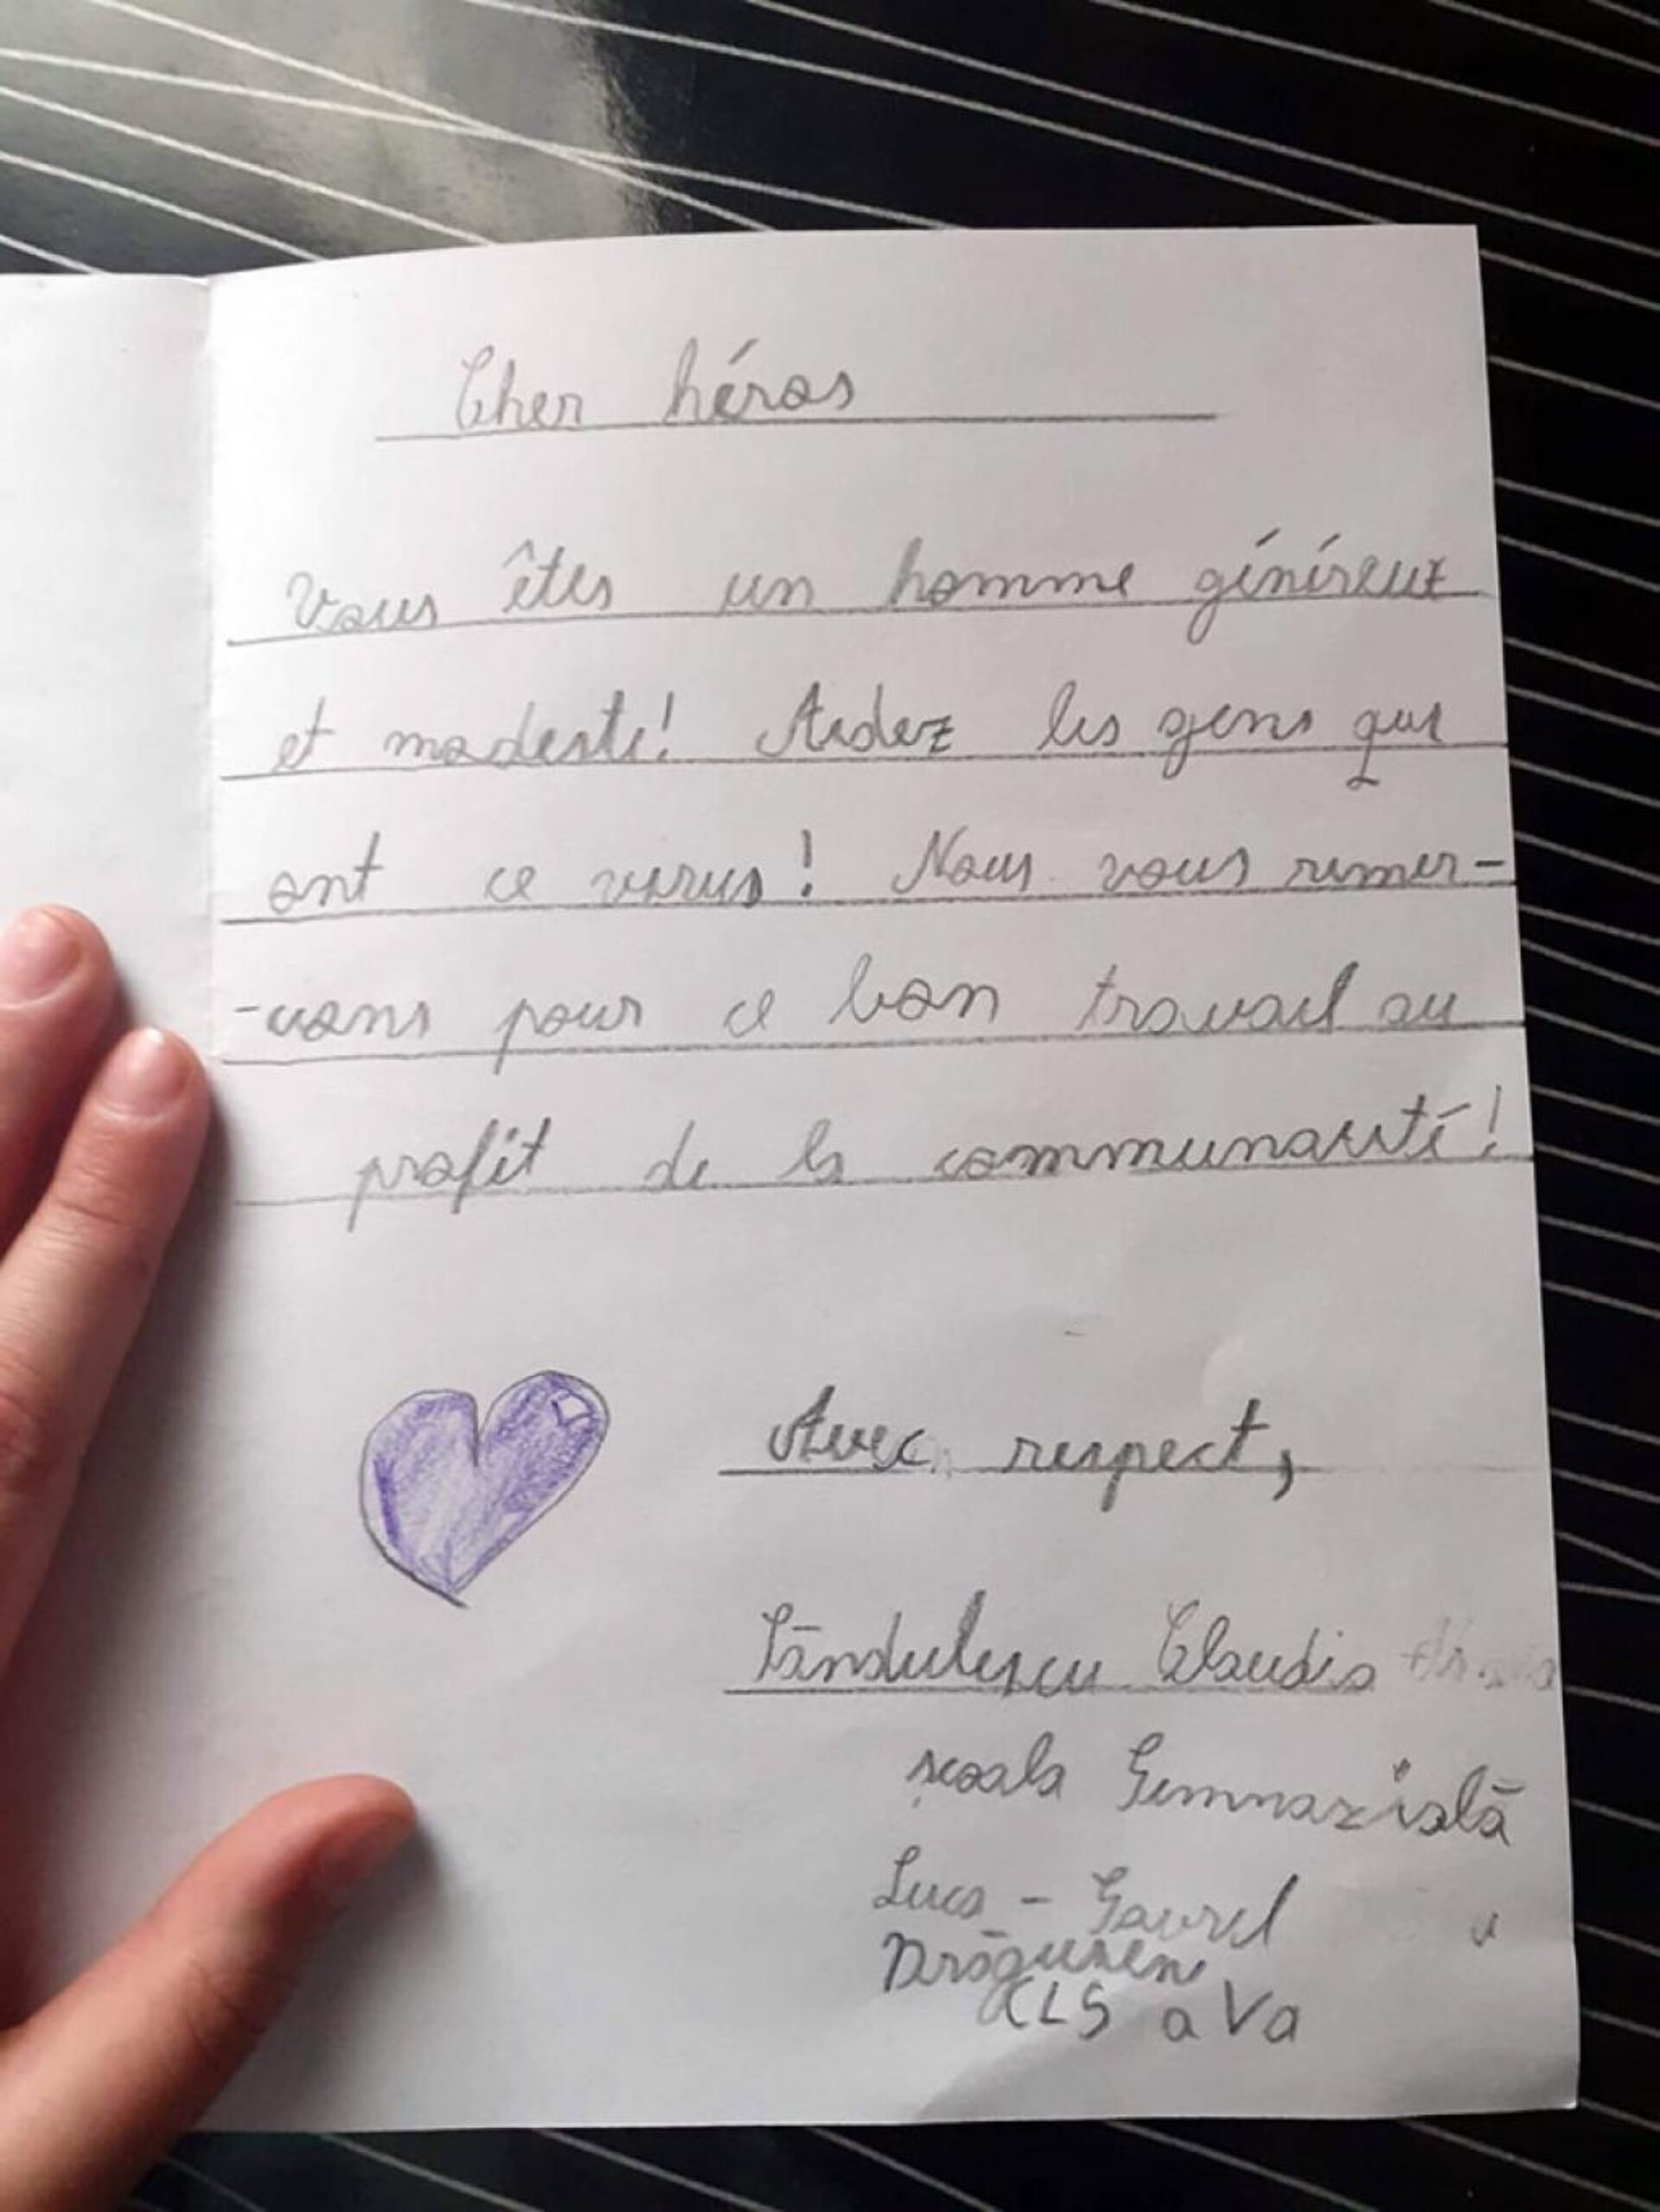 Cher héros
Vous êtes un homme généreux
et modeste! Aidez les gens qui
ont ce virus! Nous vous remer-
-cions pour ce bon travail au
profit de la communauté!
Avec respect,
Săndulescu Claudia
școala Gimnazială
Luca - Gavril
Drăgușeni
CLS a Va